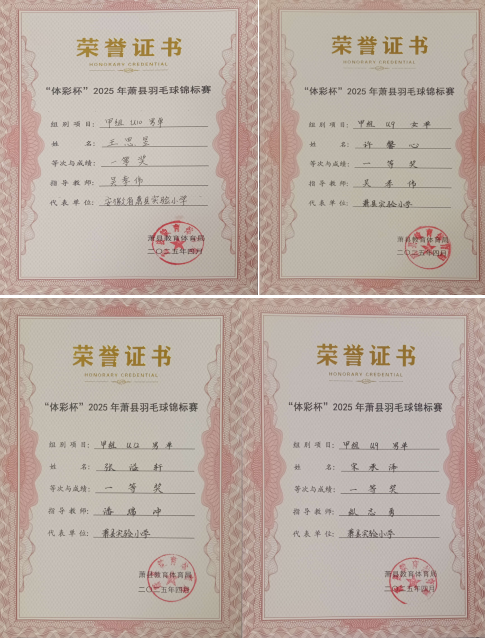 荣誉证书
HONORARY CREDENTIAL
“体彩杯”2025 年萧县羽毛球锦标赛
组 别 项 目: 甲组 U10 男单
姓 名: 王思昱
等次与成绩: 一等奖
指 导 教 师: 吴季伟
代 表 单 位: 安徽省萧县实验小学
萧县教育体育局
二〇二五年四月
荣誉证书
HONORARY CREDENTIAL
“体彩杯”2025 年萧县羽毛球锦标赛
组 别 项 目: 甲组 U9 女单
姓 名: 许馨心
等次与成绩: 一等奖
指 导 教 师: 吴季伟
代 表 单 位: 萧县实验小学
萧县教育体育局
二〇二五年四月
荣誉证书
HONORARY CREDENTIAL
“体彩杯”2025 年萧县羽毛球锦标赛
组 别 项 目: 甲组 U12 男单
姓 名: 张 轩
等次与成绩: 一等奖
指 导 教 师: 潘瑞冲
代 表 单 位: 萧县实验小学
萧县教育体育局
二〇二五年四月
荣誉证书
HONORARY CREDENTIAL
“体彩杯”2025 年萧县羽毛球锦标赛
组 别 项 目: 甲组 U9 男单
姓 名: 宋
等次与成绩: 一等奖
指 导 教 师: 志勇
代 表 单 位: 萧县实验小学
萧县教育体育局
二〇二五年四月